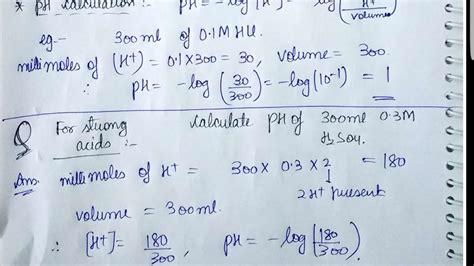 * pH calculation :- pH = -log [H+] = -log (H+ / volume)
eg:- 300ml of 0.1M HCl.
millimoles of [H+] = 0.1 × 300 = 30, volume = 300.
∴ pH = -log (30/300) = -log (10⁻¹) = 1
Q For strong acids :- calculate pH of 300ml 0.3M H₂SO₄.
Ans. millimoles of H+ = 300 × 0.3 × 2 = 180
2H+ present
volume = 300ml.
∴ [H+] = 180/300, pH = -log (180/300)